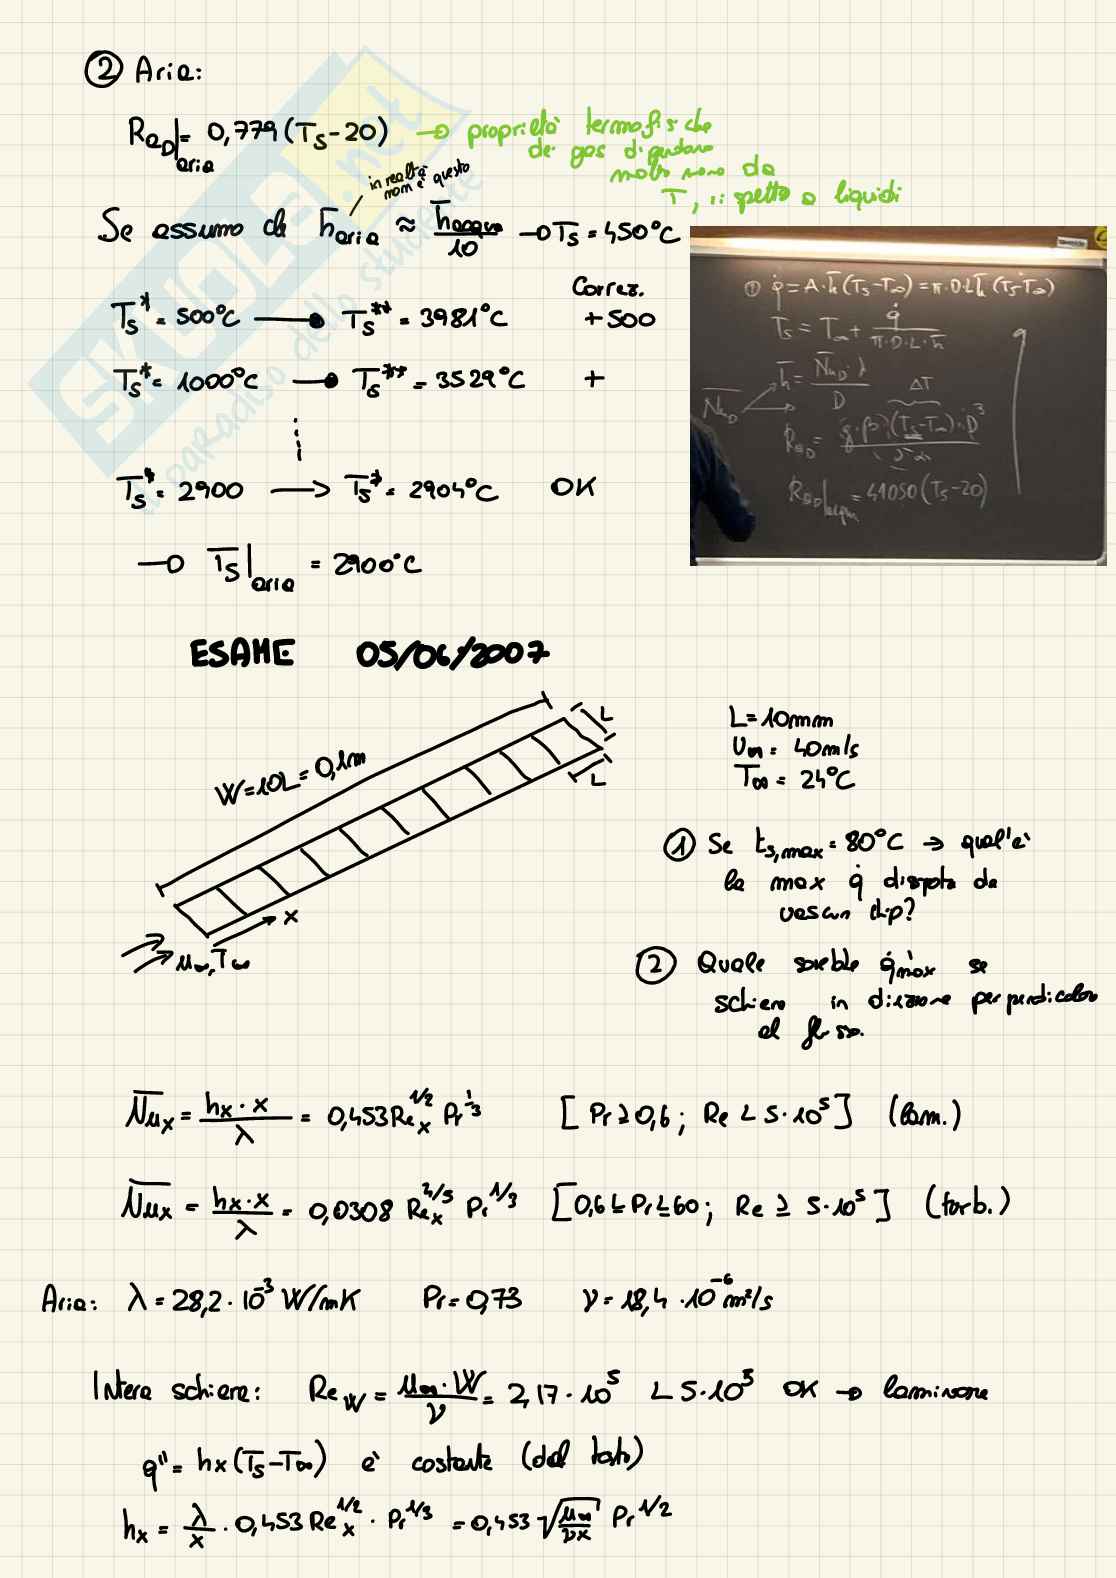 ② Aria:
Ra_D|aria = 0,779 (Ts-20) → proprietà termofisiche
dei gas dipendono
molto meno da
T, rispetto a liquidi
in realtà
non è questo
Se assumo che h̅aria ≈ h̅acqua/10 → Ts = 450°C
Correz.
Ts* = 500°C → Ts** = 3981°C +500
Ts* = 1000°C → Ts** = 3529°C +
Ts* = 2900 → Ts* = 2904°C OK
→ Ts|aria = 2900°C
① q̇ = A·h̅(Ts-T∞) = π·D·L·h̅(Ts-T∞)
Ts = T∞ + q̇/(π·D·L·h̅)
h̅ = N̅u̅D·λ/D
ΔT
N̅u̅D
RaD = g·β·(Ts-T∞)·D³
RaD|acqua = 41050 (Ts-20)
ESAME 05/06/2007
W=10L=0,1m
L
L
x
u∞, T∞
L=10mm
U∞ = 40m/s
T∞ = 24°C
① Se ts,max = 80°C → qual'è
la max q̇ dissipata da
ciascun chip?
② Quale sarebbe q̇max se
schiera in direzione perpendicolare
al flusso.
N̅u̅x = hx·x/λ = 0,453 Rex^1/2 Pr^1/3 [Pr ≥ 0,6 ; Re < 5·10⁵] (lam.)
N̅u̅x = hx·x/λ = 0,0308 Rex^4/5 Pr^1/3 [0,6 ≤ Pr ≤ 60 ; Re ≥ 5·10⁵] (torb.)
Aria: λ = 28,2·10⁻³ W/mK Pr = 0,73 ν = 18,4·10⁻⁶ m²/s
Intera schiera: Re_W = u∞·W/ν = 2,17·10⁵ < 5·10⁵ OK → laminare
q'' = hx(Ts-T∞) è costante (dal testo)
hx = λ/x · 0,453 Rex^1/2 · Pr^1/3 = 0,453 √(u∞/νx) Pr^1/2
SKUOLA.net
il paradiso dello studente